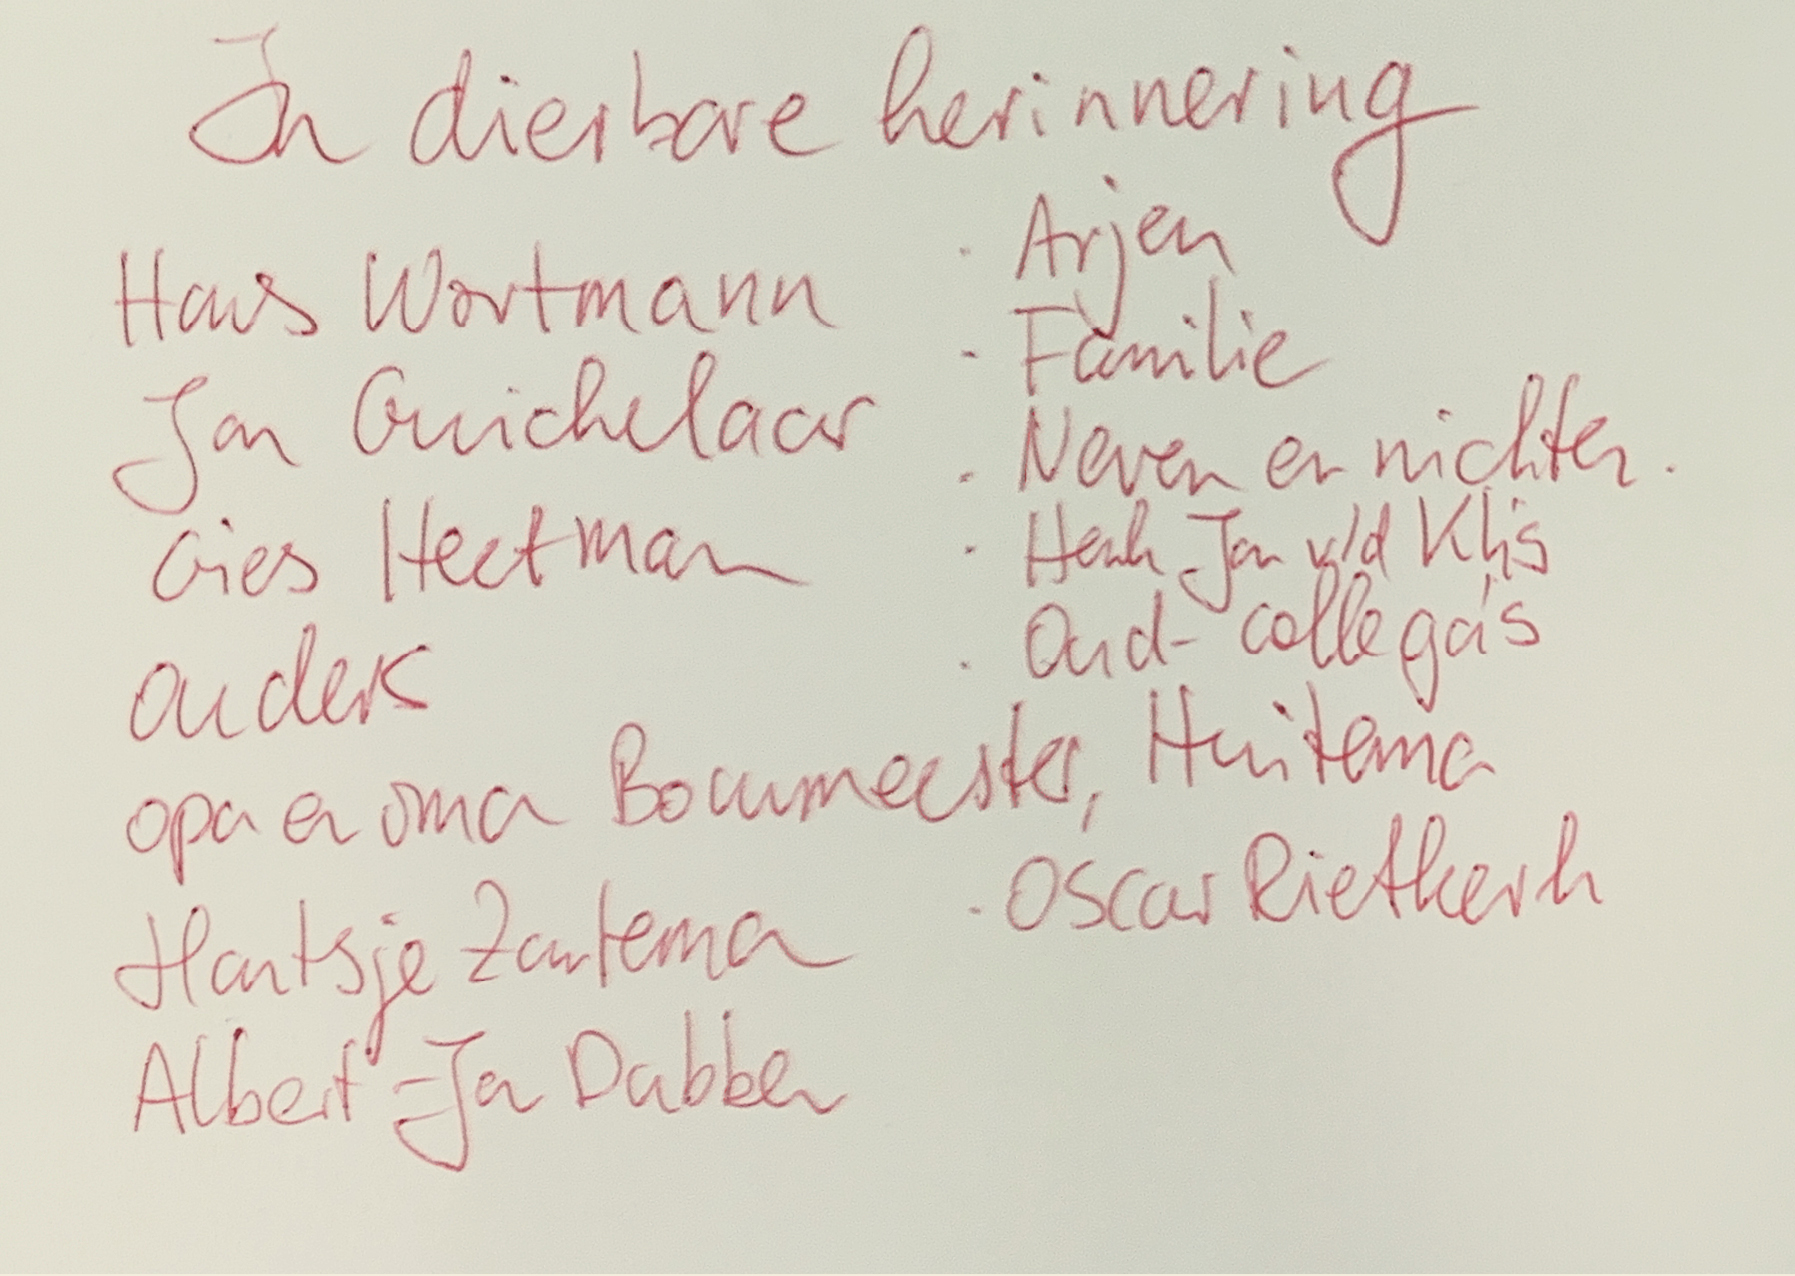 In dierbare herinnering
Hans Wortmann
Jan Guichelaar
Gies Heetman
ouders
opa en oma Bouwmeester, Huitema
Hantsje Zantema
Albert-Jan Dubben
· Arjen
- Familie
· Neven en nichten.
· Henk-Jan v/d Klis
· Oud-collega's
· Oscar Rietkerk